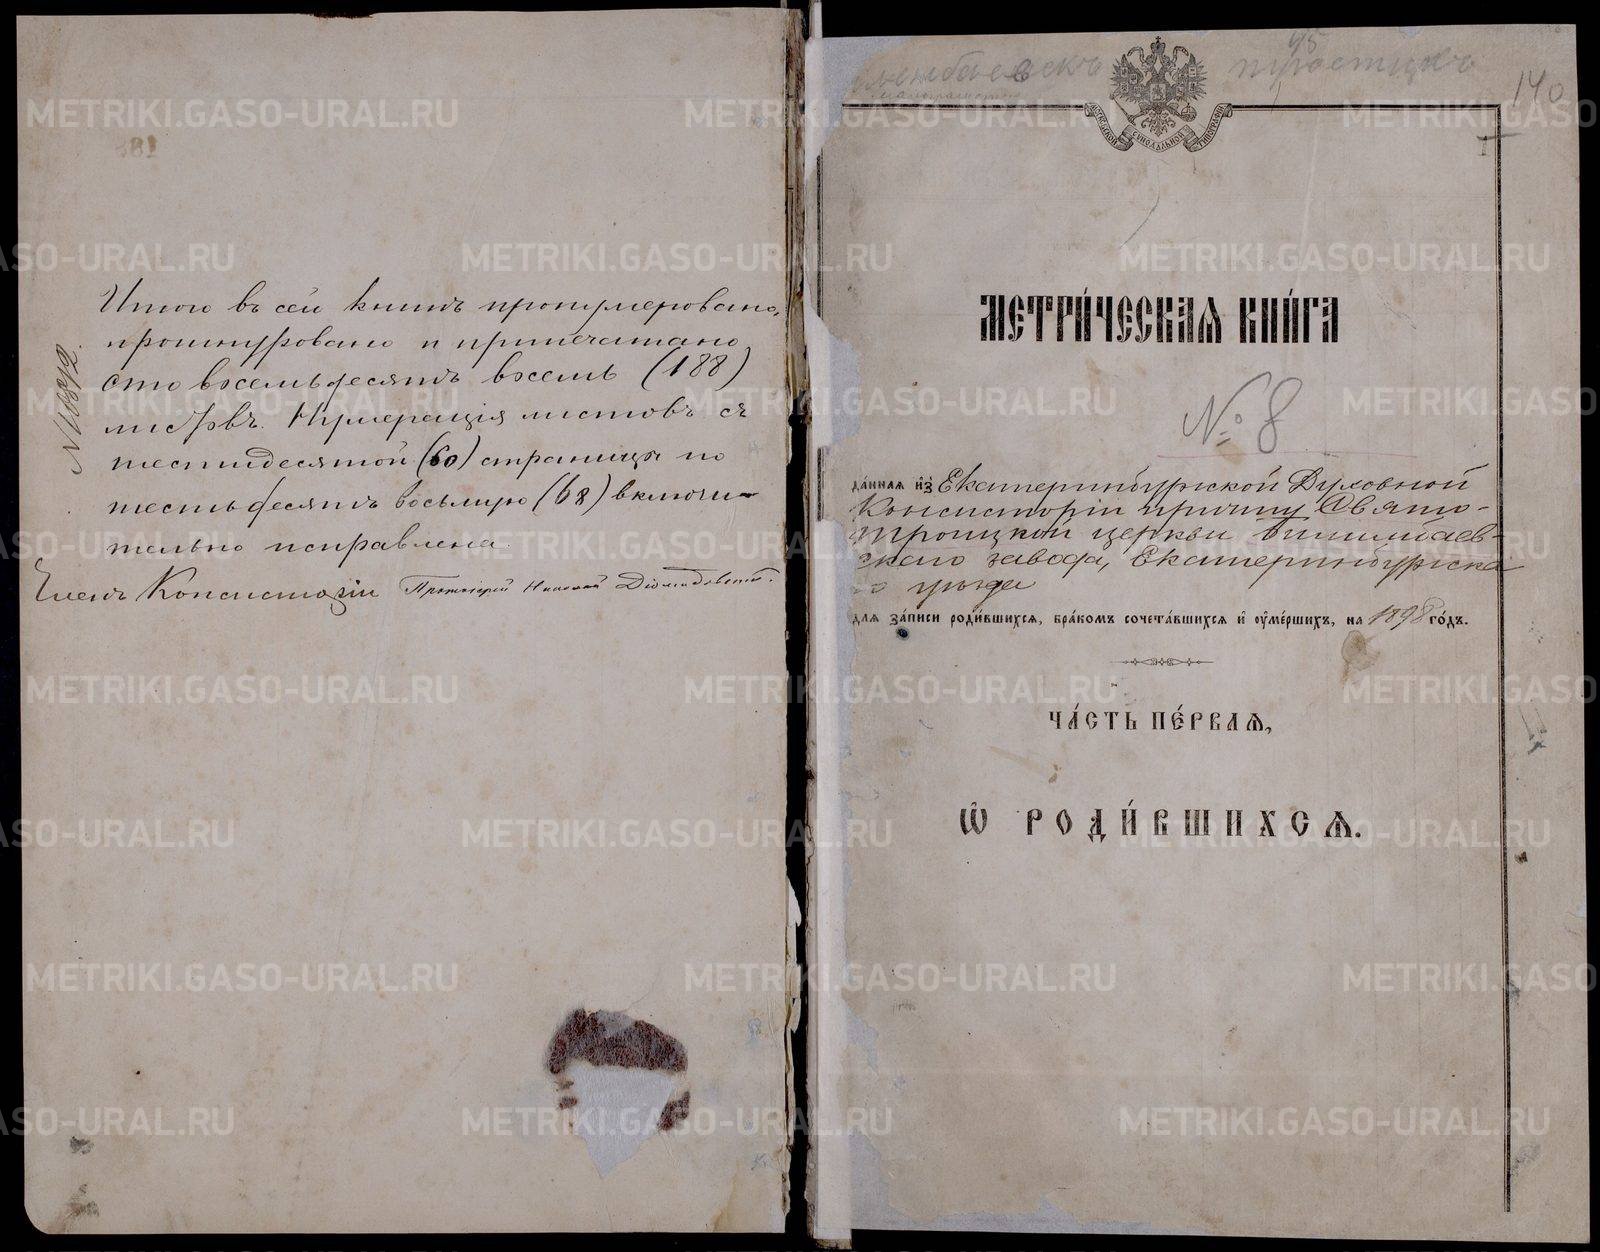 Итого въ сей книгѣ пронумеровано,
прошнуровано и припечатано
сто восемьдесятъ восемь (188)
листовъ. Нумерація листовъ съ
шестидесятой (60) страницы по
шестьдесятъ восьмую (68) включи-
тельно исправлена
Членъ Консисторіи Протоіерей Николай Діомидовскій.
140
I
МОСКОВСКОЙ СѴНОДАЛЬНОЙ ТИПОГРАФІИ
МЕТРИ́ЧЕСКАѦ КНИ́ГА
№ 8
ДА́ННАѦ И҆З̾ Екатеринбургской Духовной
Консисторіи причту Свято-
Троицкой церкви Билимбаев-
скаго завода, Екатеринбургска
го уѣзда
ДЛѦ ЗА́ПИСИ РОДИ́ВШИХСѦ, БРА́КОМЪ СОЧЕТА́ВШИХСѦ И҆ ОУ҆МЕ́РШИХЪ, НА 1898 ГО́ДЪ.
ЧА́СТЬ ПЕ́РВАѦ,
Ѽ РОДИ́ВШИХСѦ.
METRIKI.GASO-URAL.RU